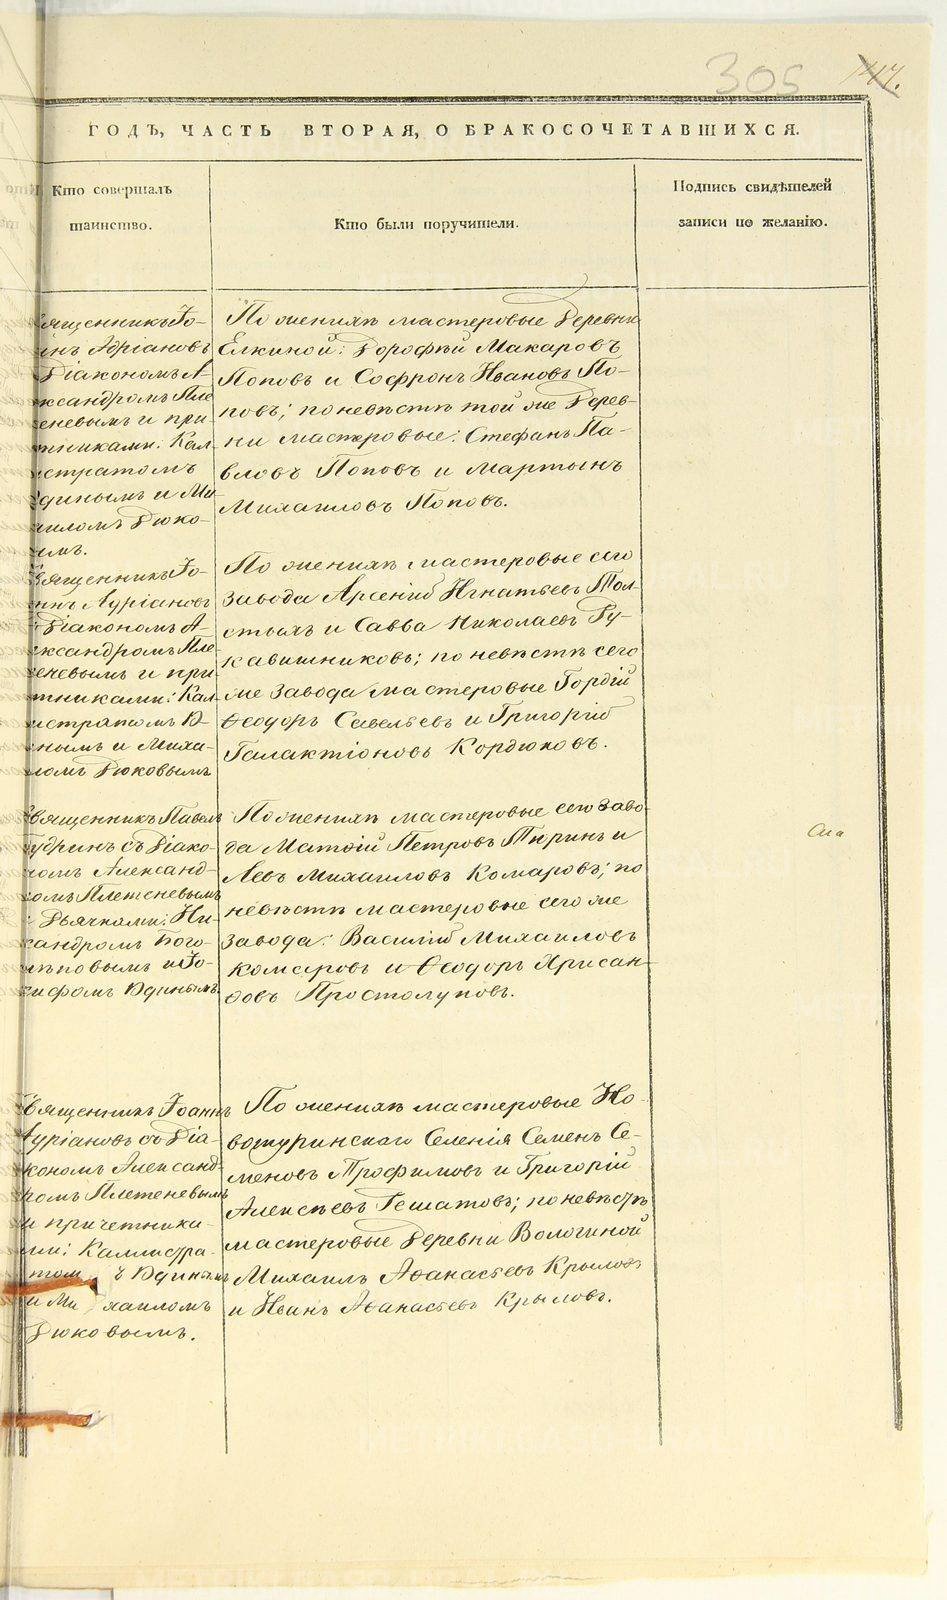 305
147.
ГОДЪ, ЧАСТЬ ВТОРАЯ, О БРАКОСОЧЕТАВШИХСЯ.
Кто совершалъ
таинство.
Кто были поручители.
Подпись свидѣтелей
записи по желанію.
ященникъ Іо-
Адріановъ
Діакономъ А-
ксандромъ Пле
еневымъ и при-
тниками: Кал-
истратомъ
динымъ и Ми-
аиломъ Дюко-
ымъ.
По женихѣ мастеровые деревни
Елкиной: Дорофѣй Макаровъ
Поповъ и Софронъ Ивановъ По-
повъ; по невѣстѣ той же дерев-
ни мастеровые: Стефанъ Па-
вловъ Поповъ и Мартынъ
Михаиловъ Поповъ.
вященникъ Іо-
Діакономъ А-
ександромъ Пле-
еневымъ и при-
тниками: Кал-
истратомъ Ю-
нымъ и Миха-
ломъ Дюковымъ
По женихѣ мастеровые сего
завода Арсеній Игнатьевъ Тол-
стыхъ и Савва Николаевъ Ру-
кавишниковъ; по невѣстѣ сего
же завода мастеровые Гордій
Ѳеодоръ Савельевъ и Григорій
Галактіоновъ Кордюковъ.
вященникъ Павелъ
удринъ съ Діако-
номъ Александ-
ромъ Плетеневымъ
Дьячками: Ни-
кандромъ Бого-
лѣповымъ и Іо-
сифомъ Юдинымъ.
По женихѣ мастеровые сего заво-
да Матѳій Петровъ Тиринъ и
Левъ Михаиловъ Комаровъ; по
невѣстѣ мастеровые сего же
завода: Василій Михаиловъ
Комаровъ и Ѳеодоръ Хрисан-
ѳовъ Простолуповъ.
Священникъ Іоаннъ
Ауріановъ съ Діа-
кономъ Александ-
ромъ Плетеневымъ
и причетника-
ми: Каллистра-
том ъ Юдинымъ
и Ми хаиломъ
Дюковымъ.
По женихѣ мастеровые Но-
вотуринскаго Селенія Семенъ Се-
меновъ Трофимовъ и Григорій
Алексѣевъ Решатовъ; по невѣстѣ
мастеровые деревни Вологиной
Михаилъ Аѳанасьевъ Крыловъ
и Иванъ Аѳанасьевъ Крыловъ.